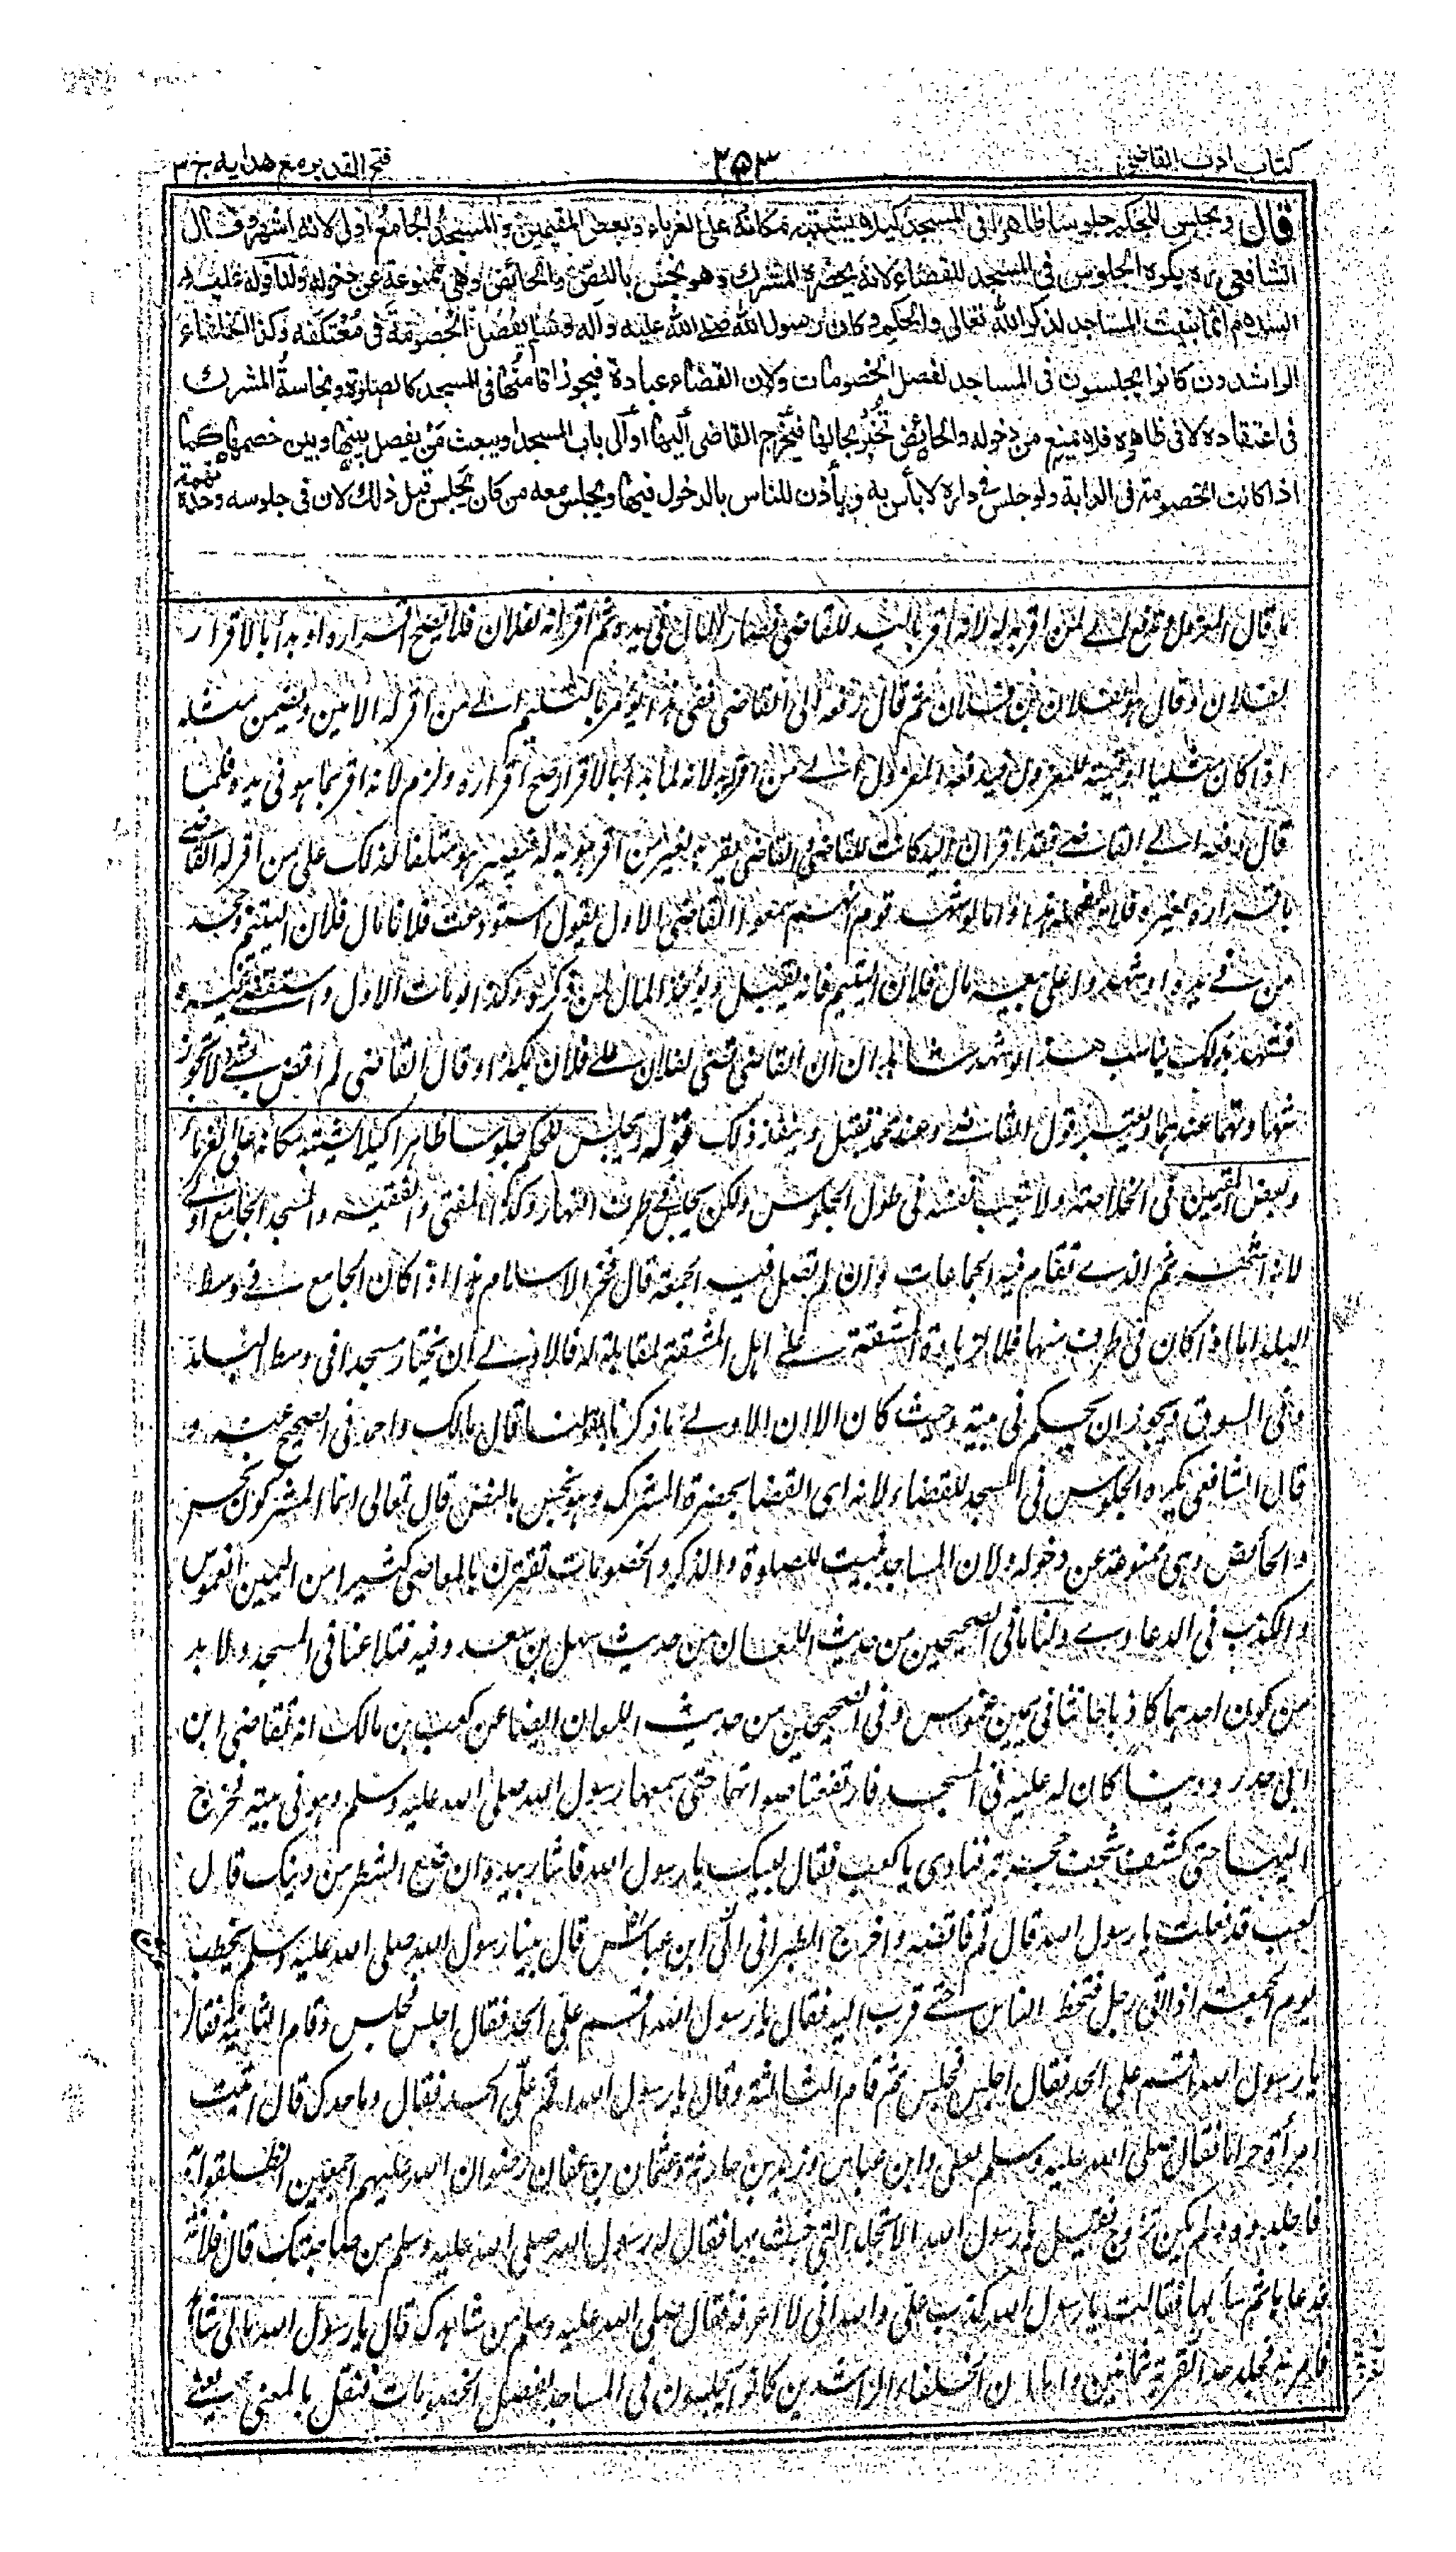 كتاب ادب القاضى
٢٥٣
فتح القدير مع هدايه ج ٣
قال ويجلس للحكم جلوسا ظاهرا فى المسجد كيلا يشتبه مكانه على الغرباء وبعض المقيمين والمسجد الجامع اولى لانه اشهر وقال
الشافعى ره يكره الجلوس فى المسجد للقضاء لانه يحضره المشرك وهو نجس بالنص والحائض وهى ممنوعة عن دخوله ولنا قوله عليه
السلام انما بنيت المساجد لذكر الله تعالى وللحكم وكان رسول الله صلى الله عليه واله وسلم يفصل الخصومة فى معتكفه وكذا الخلفاء
الراشدون كانوا يجلسون فى المساجد لفصل الخصومات ولان القضاء عبادة فيجوز اقامتها فى المسجد كالصلوة ونجاسة المشرك
فى اعتقاده لا فى ظاهره فلا يمنع من دخوله والحائض تخبر بحالها فيخرج القاضى اليها او الى باب المسجد او يبعث من يفصل بينها وبين خصمها كما
اذا كانت الخصومة فى الدابة ولو جلس فى داره لا بأس به ويأذن للناس بالدخول فيها ويجلس معه من كان يجلس قبل ذلك لان فى جلوسه وحده
تهمة
ما قال المعزول الى من اقر به له لانه اقر باليد للقاضى فصار المال فى يده ثم اقر انه لفلان فلا يصح اقراره او بدأ بالاقرار
لفلان وقال هو لفلان بن فلان ثم قال دفعه الى القاضى ففى هذا يؤمر بالتسليم الى من اقر له الامين ويضمن مثله
اذا كان مثليا او قيمته للمعزول فيدفعه المعزول الى من اقر به لانه لما بدأ بالاقرار صح اقراره ولزم لانه اقر بما هو فى يده فلما
قال دفعه الى القاضى فقد اقر ان اليد كانت للقاضى والقاضى يقر به لغير من اقر هو به له فيصير هو متلفا لذلك على من اقر له القاضى
باقراره لغيره اما لو شهد قوم انهم سمعوا القاضى الاول يقول استودعت فلانا مال فلان اليتيم وجحد
من فى يده او شهدوا على بيعه مال فلان اليتيم فانه يقبل ويؤخذ المال لمن ذكر وكذا لو مات الاول واستقضى غيره
فشهد بذلك شاهدان ان القاضى قضى لفلان على فلان بكذا وقال القاضى لم اقض بشئ لا تجوز
شهادتهما عندهما ويعتبر قول القاضى وعند محمد تقبل وينفذ ذلك قوله ويجلس للحكم جلوسا ظاهرا كيلا يشتبه مكانه على الغرباء
وبعض المقيمين فى الخلاصة ولا يتعب نفسه فى طول الجلوس ولكن يجلس فى طرفى النهار وكذا المفتى والفقيه والمسجد الجامع اولى
لانه اشهر ثم الذى تقام فيه الجماعات وان لم تصل فيه الجمعة قال فخر الاسلام هذا اذا كان الجامع فى وسط
البلد اما اذا كان فى طرف منها فلا لزيادة المشقة على اهل الشقة المقابلة له فالاولى ان يختار مسجدا فى وسط البلد
وفى السوق ويجوز ان يحكم فى بيته وحيث كان الا ان الاولى ما ذكرنا وبقولنا قال مالك واحمد فى الصحيح عنه و
قال الشافعى يكره الجلوس فى المسجد للقضاء لانه اى القضاء بحضرة المشرك وهو نجس بالنص قال تعالى انما المشركون نجس
والحائض وهى ممنوعة عن دخوله ولان المساجد بنيت للصلوة والذكر والخصومات تقترن بالمعاصى كثيرا من اليمين الغموس
والكذب فى الدعاوى ولنا ما فى الصحيحين من حديث اللعان من حديث سهل بن سعد وفيه فتلاعنا فى المسجد ولا بد
من كون احدهما كاذبا حانثا فى يمين غموس وفى الصحيحين من حديث اللعان ايضا عن كعب بن مالك انه تقاضى ابن
ابى حدرد دينا كان له عليه فى المسجد فارتفعت اصواتهما حتى سمعها رسول الله صلى الله عليه وسلم وهو فى بيته فخرج
اليهما حتى كشف سجف حجرته فنادى يا كعب فقال لبيك يا رسول الله فاشار بيده ان ضع الشطر من دينك قال
كعب قد فعلت يا رسول الله قال قم فاقضه واخرج الطبرانى الى ابن عباس قال بينا رسول الله صلى الله عليه وسلم يخطب
يوم الجمعة اذ اتى رجل فتخطى الناس حتى قرب اليه فقال يا رسول الله اقم علىّ الحد فقال اجلس فجلس وقام الثانية فقال
يا رسول الله اقم على الحد فقال اجلس فجلس ثم قام الثالثة وقال يا رسول الله اقم علىّ الحد فقال وما حدك قال اتيت
امرأة حراما فقال صلى الله عليه وسلم لعلى وابن عباس وزيد بن حارثة وعثمان بن عفان رضوان الله عليهم اجمعين انطلقوا به
فاجلدوه ولم يكن تزوج فقيل يا رسول الله الا تجلد التى خبث بها فقال له رسول الله صلى الله عليه وسلم من صاحبتك قال فلانة
فدعا بها ثم سألها فقالت يا رسول الله كذب علىّ والله انى لا اعرفه فقال صلى الله عليه وسلم من شاهدك قال يا رسول الله مالى شاهد
فامر به فجلد حد الفرية ثمانين واما ان الخلفاء الراشدين كانوا يجلسون فى المساجد لفصل الخصومات فنقل بالمعنى يعنى